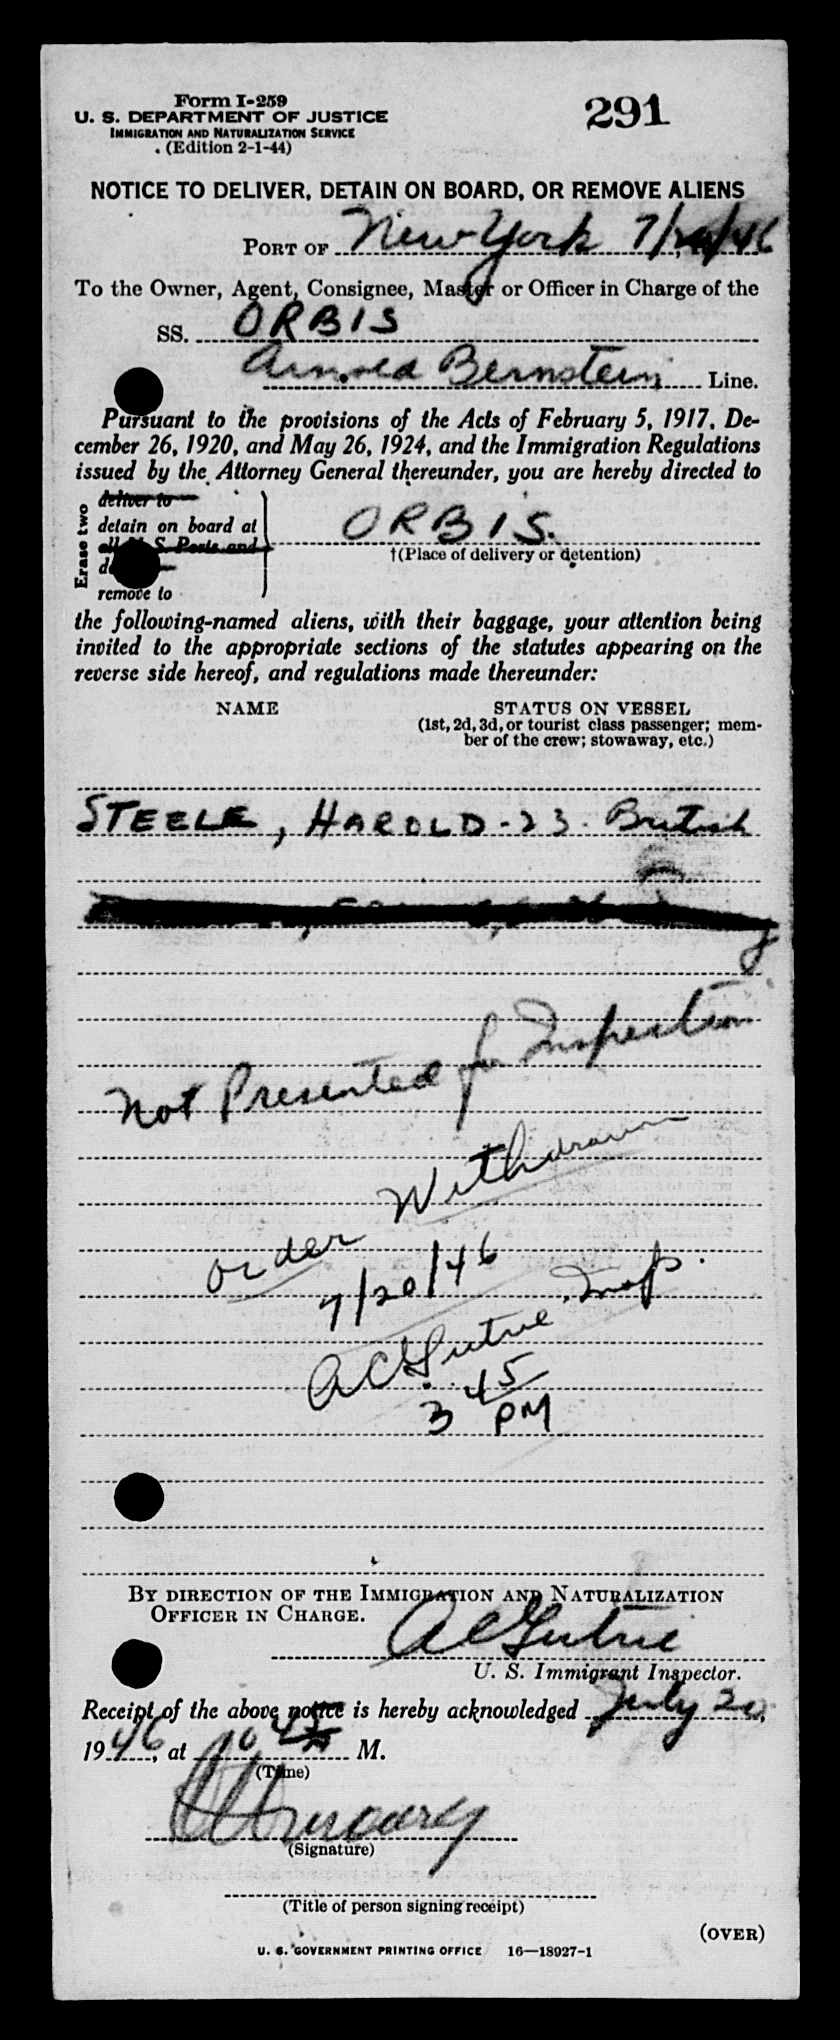 Form I-259
U. S. DEPARTMENT OF JUSTICE
IMMIGRATION AND NATURALIZATION SERVICE
(Edition 2-1-44)
291
NOTICE TO DELIVER, DETAIN ON BOARD, OR REMOVE ALIENS
PORT OF New York 7/20/46
To the Owner, Agent, Consignee, Master or Officer in Charge of the
SS. ORBIS
Arnold Bernstein Line.
Pursuant to the provisions of the Acts of February 5, 1917, De-
cember 26, 1920, and May 26, 1924, and the Immigration Regulations
issued by the Attorney General thereunder, you are hereby directed to
Erase two
deliver to
detain on board at
all U. S. Ports and
remove to
ORBIS.
†(Place of delivery or detention)
the following-named aliens, with their baggage, your attention being
invited to the appropriate sections of the statutes appearing on the
reverse side hereof, and regulations made thereunder:
NAME
STATUS ON VESSEL
(1st, 2d, 3d, or tourist class passenger; mem-
ber of the crew; stowaway, etc.)
STEELE, HAROLD - 23. British
Not Presented for Inspection
order Withdrawn
7/20/46
A C Gutrie. Insp.
3 45 PM
BY DIRECTION OF THE IMMIGRATION AND NATURALIZATION
OFFICER IN CHARGE.
A C Gutrie
U. S. Immigrant Inspector.
Receipt of the above notice is hereby acknowledged July 20,
19 46, at 10 45 M.
(Time)
(Signature)
(Title of person signing receipt)
(OVER)
U. S. GOVERNMENT PRINTING OFFICE 16—18927-1